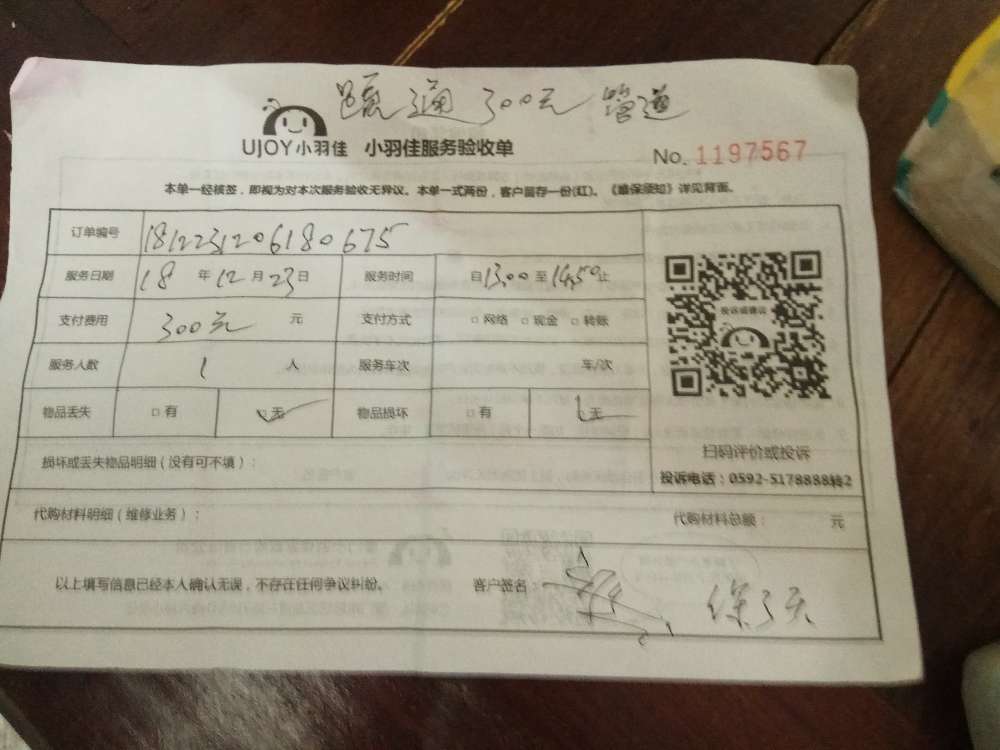 疏通 300元 管道
UJOY小羽佳 小羽佳服务验收单
No. 1197567
本单一经核签,即视为对本次服务验收无异议。本单一式两份,客户留存一份(红)。《维保须知》详见背面。
订单编号 1812231206180675
服务日期 18 年 12 月 23 日 服务时间 自 13:00 至 14:50 止
支付费用 300元 元 支付方式 □ 网络 □ 现金 □ 转账
服务人数 1 人 服务车次 车/次
物品丢失 □ 有 □ 无 物品损坏 □ 有 □ 无
投诉或建议
扫码评价或投诉
投诉电话:0592-5178888转2
损坏或丢失物品明细(没有可不填):
代购材料明细(维修业务): 代购材料总额: 元
以上填写信息已经本人确认无误,不存在任何争议纠纷。 客户签名: